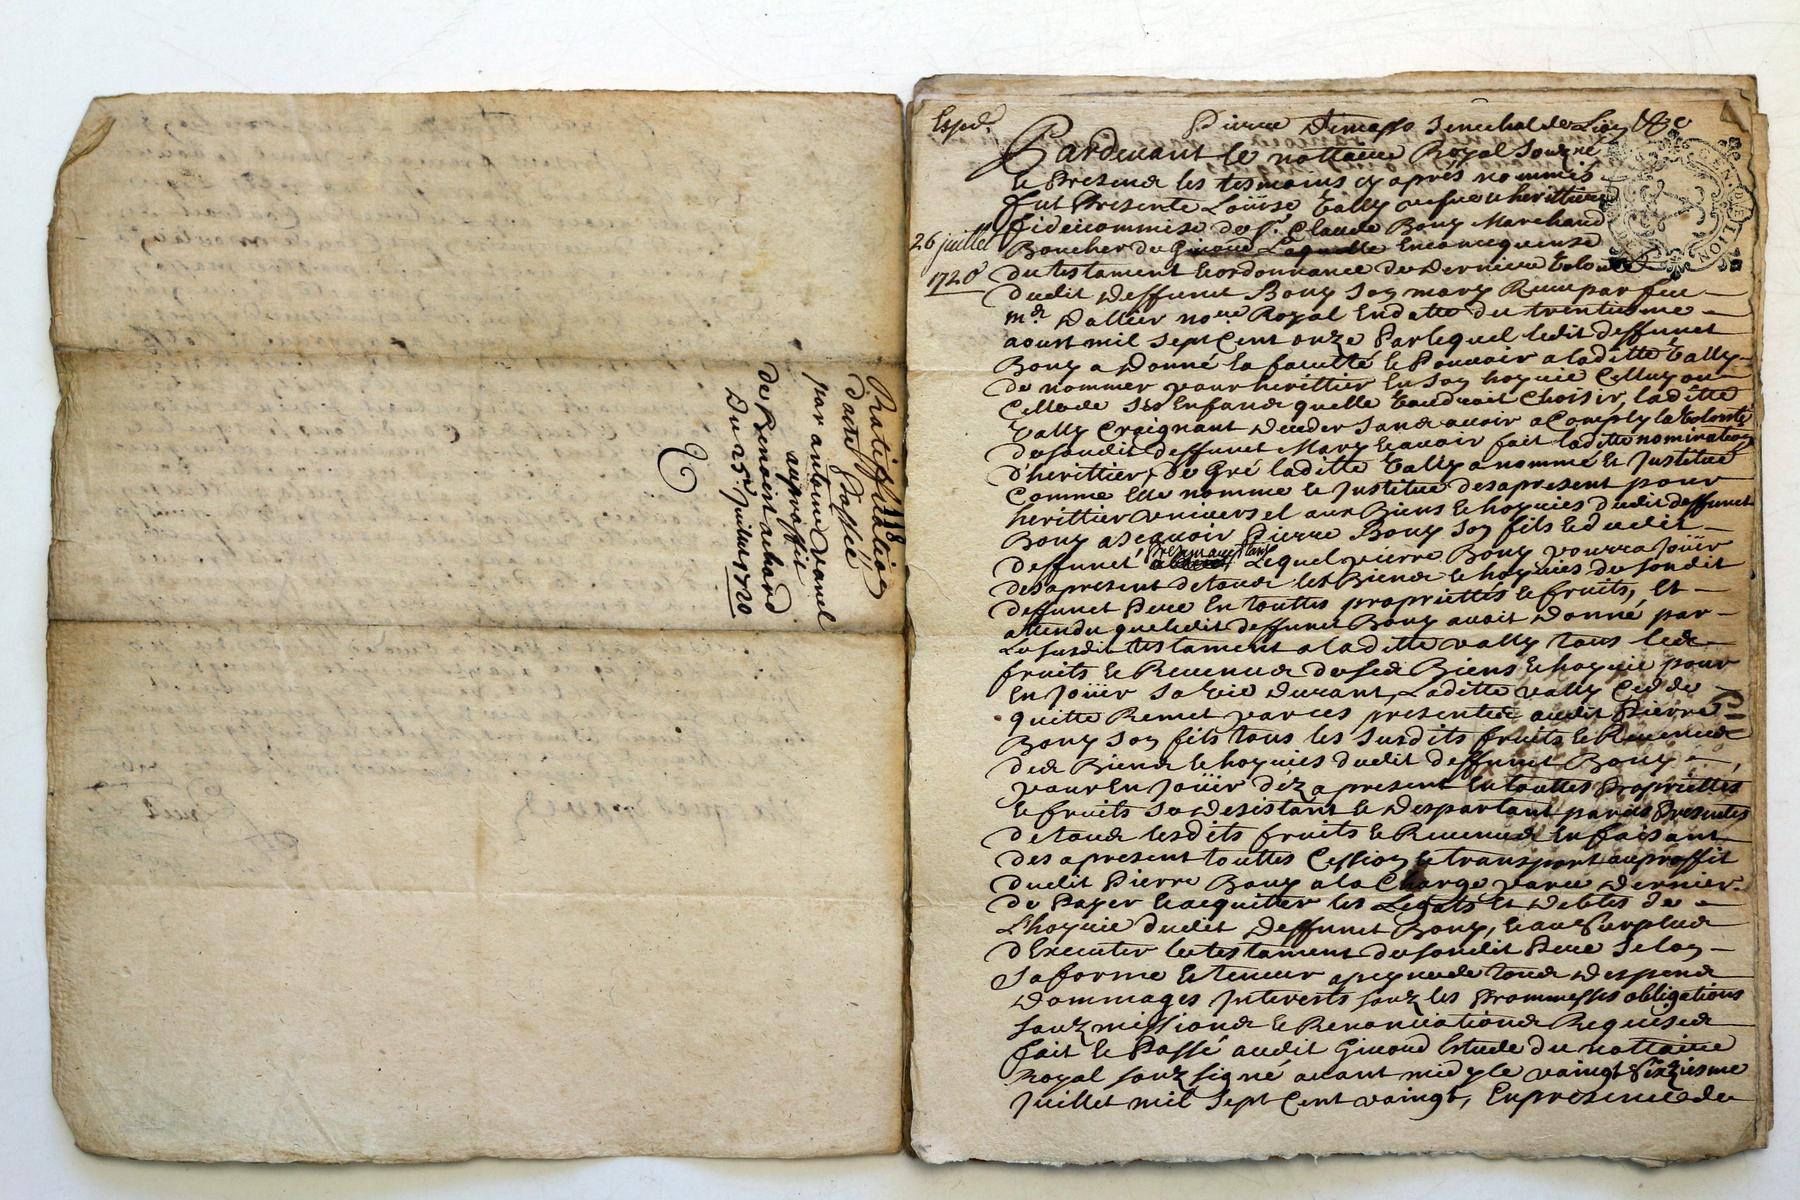 118
Ratiffication
dacte passée
par antoine vanel
auproffit
de Benoist achard
Du 25e. Juillet 1720
Exped.
26 juillet
1720
Pierre Demasso Senechal de Lion &c
Pardevant le nottaire Royal Souzne
le Presence les tesmoins cy après nommés
fut Presente Loüise Vally vefue et herittiere
fideicommise de sr. Claude Bony Marchand
Boucher de Givord Laquelle Enconcequense
du testament et ordonnance de Derniere Volonté
dudit Deffunct Bony Son mary Receu par feu
me. Dallier nore. Royal Endatte du trentiesme
aoust mil Sept Cent onze Parlequel ledit deffunct
Bony a Donné la faculté le Pouvoir a laditte Vally
de nommer pour herittier En Son hoyrie Celluy ou
Celle de Ses Enfans quelle Voudroit Choisir, laditte
Vally Craignant deceder Sans avoir acomply la Volonté
dusondit deffunct Mary et avoir fait laditte nomination
d'herittier, de Gré laditte Vally a nommé et Justitué
Comme Elle nomme et Justitue desapresent pour
herittier universel aux Biens et hoyries dudit deffunct
Bony ascavoir Pierre Bony Son fils et dudit
deffunct Lequel pierre Bony pourra Joüir
desapresent de tous les Biens et hoyries du Sondit
deffunct Pere En touttes proprietés et fruits, Et
attendu que ledit deffunct Bony avoit Donné par
Le susdit testament a laditte vally tous les
fruits et Revenus de ses Biens et hoyrie pour
En Joüir Sa vie Durant, Laditte vally Cedde
quitte Remet par ces presentes audit Pierre
Bony Son fils tous les Susdits fruits et Revenus
des Biens et hoyries dudit deffunct Bony
pour En Joüir dez apresent En touttes Proprietés
et fruits Se Desistant et Despartant par ces Presentes
de tous lesdits fruits et Revenus En faisant
des apresent touttes Cession et transport auproffit
dudit Pierre Bony a la Charge par ce dernier
de Payer et acquitter les Legats et Debtes de
L'hoyrie dudit Deffunct Bony, et au Surplus
d'Executer le testament dusondit Pere Selon
Sa forme et teneur apeyne de tous Despens
Dommages Jnterests souz les Prommesses obligations
Souzmissions et Renonciations Requises
fait et Passé audit Givord Estude du nottaire
Royal souzsigné avant midy le vaingt sixiesme
Juillet mil Sept Cent vaingt, En presence de